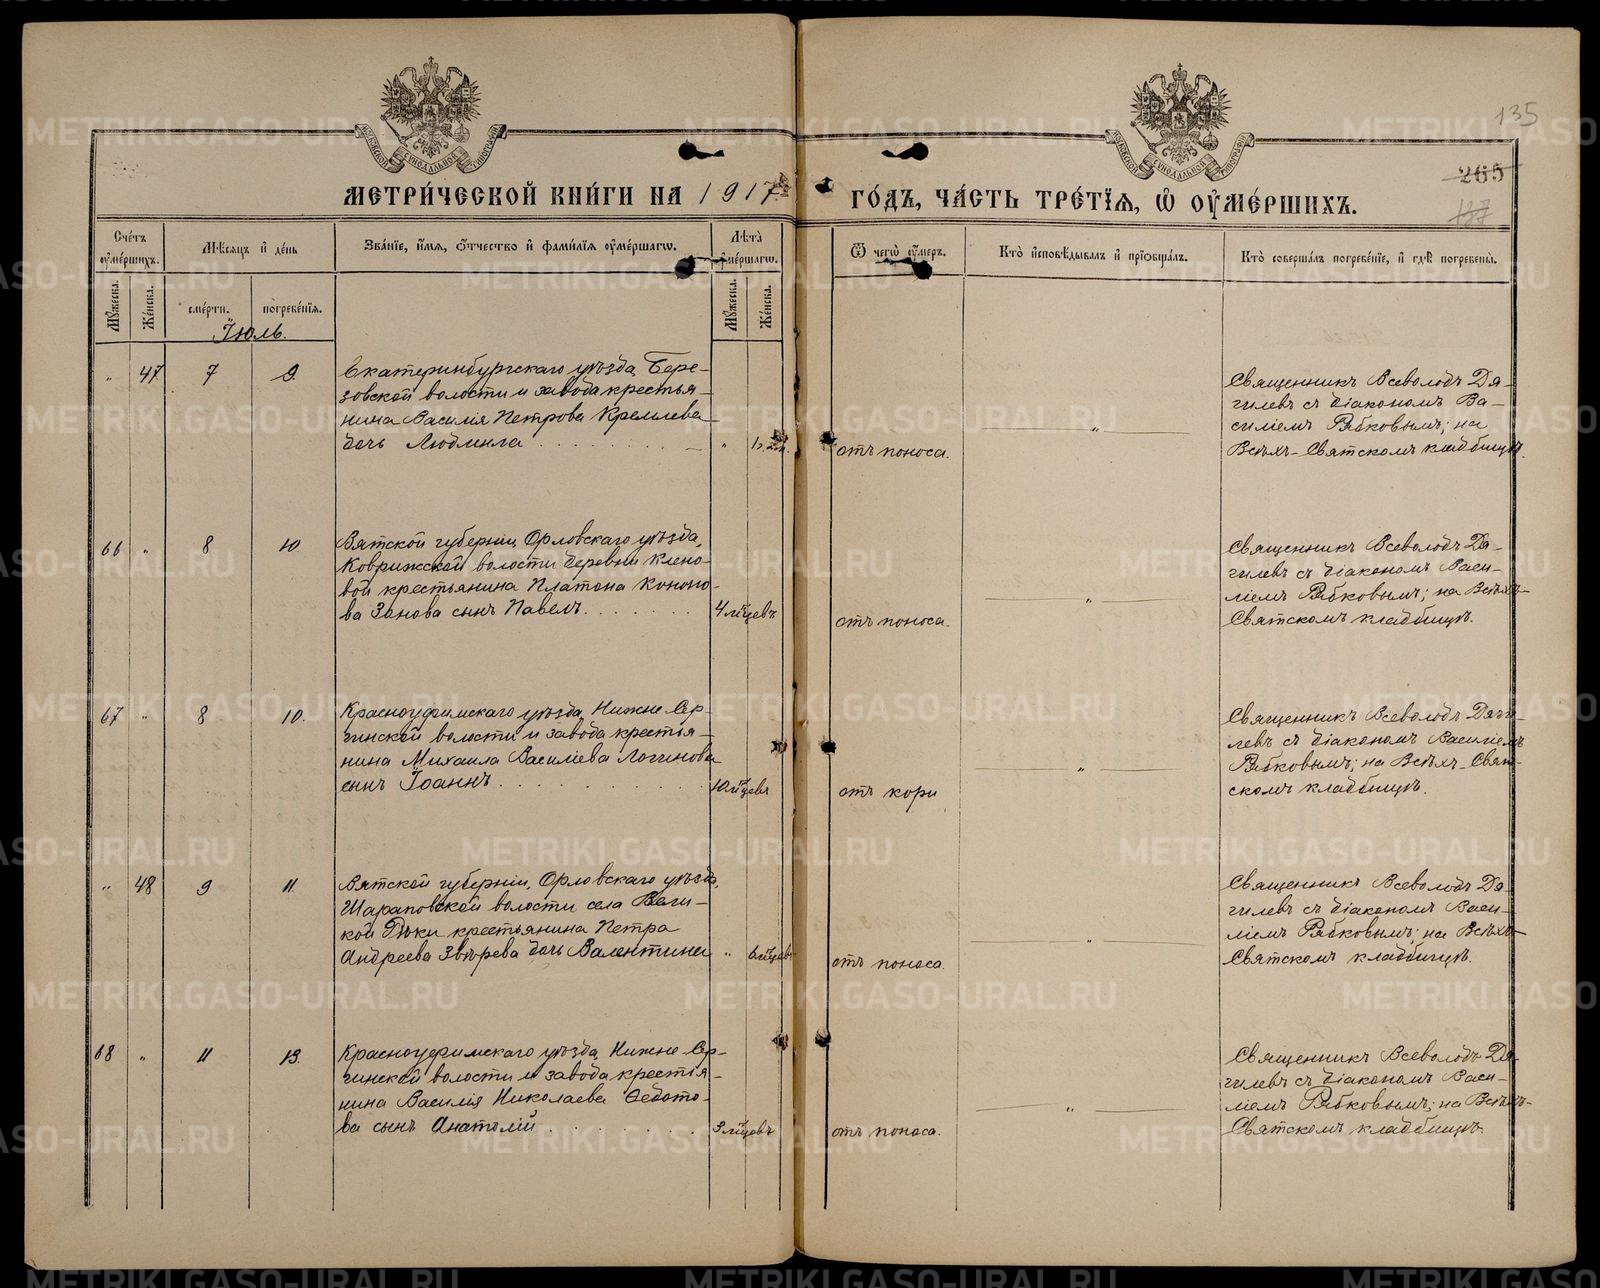 135
265
137
МЕТРИ́ЧЕСКОЙ КНИ́ГИ НА 1917 ГО́ДЪ, ЧА́СТЬ ТРЕ́ТЇѦ, Ѡ҆ ОУ҆МЕ́РШИХЪ.
Сче́тъ оу҆ме́ршихъ.
Мѣ́сяцъ и҆ де́нь
Зва́нїе, и҆́мя, ѻ҆́тчество и҆ фами́лїя оу҆ме́ршагѡ.
Лѣ́та оу҆ме́ршагѡ.
Ѿ чегѡ̀ оу҆́меръ.
Кто̀ и҆сповѣ́дывалъ и҆ прїобща́лъ.
Кто̀ соверша́лъ погребе́нїе, и҆ гдѣ̀ погребены̀.
Му́жеска.
Же́нска.
сме́рти.
погребе́нїя.
Му́жеска.
Же́нска.
Іюль.
" 47 7 9.
Екатеринбургскаго уѣзда, Бере-
зовской волости и завода крестья-
нина Василія Петрова Кремлева
дочь Людмила
"
отъ поноса.
"
Священникъ Всеволодъ Дя-
гилевъ съ діакономъ Ва-
силіемъ Рябковымъ; на
Всѣхъ-Святскомъ кладбищѣ.
66 " 8 10.
Вятской губерніи, Орловскаго уѣзда,
Коврижской волости деревни Клено-
вой крестьянина Платона Кононо-
ва Занова сынъ Павелъ.
4 м-цевъ
отъ поноса.
"
Священникъ Всеволодъ Дя-
гилевъ съ діакономъ Васи-
ліемъ Рябковымъ; на Всѣхъ-
Святскомъ кладбищѣ.
67 " 8 10.
Красноуфимскаго уѣзда, Нижне Сер-
гинской волости и завода крестья-
нина Михаила Василіева Логинова
сынъ Іоаннъ
10 м-цевъ
отъ кори
"
Священникъ Всеволодъ Дяги-
левъ съ діакономъ Василіемъ
Рябковымъ; на Всѣхъ-Свят-
скомъ кладбищѣ.
" 48 9 11.
Вятской губерніи, Орловскаго уѣзда,
Шараповской волости села Вели-
кой Рѣки крестьянина Петра
Андреева Звѣрева дочь Валентина
" 6 м-цевъ
отъ поноса.
"
Священникъ Всеволодъ Дя-
гилевъ съ діакономъ Васи-
ліемъ Рябковымъ; на Всѣхъ-
Святскомъ кладбищѣ.
68 " 11 13.
Красноуфимскаго уѣзда, Нижне-Сер-
гинской волости и завода крестья-
нина Василія Николаева Ѳедото-
ва сынъ Анатолій
3 м-цевъ
отъ поноса.
"
Священникъ Всеволодъ Дя-
гилевъ съ діакономъ Васи-
ліемъ Рябковымъ; на Всѣхъ-
Святскомъ кладбищѣ.
METRIKI.GASO-URAL.RU